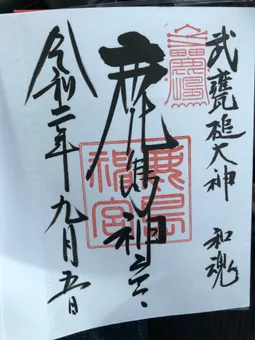 武甕槌大神 和魂
鹿島神宮
鹿島
神宮
令和二年九月五日